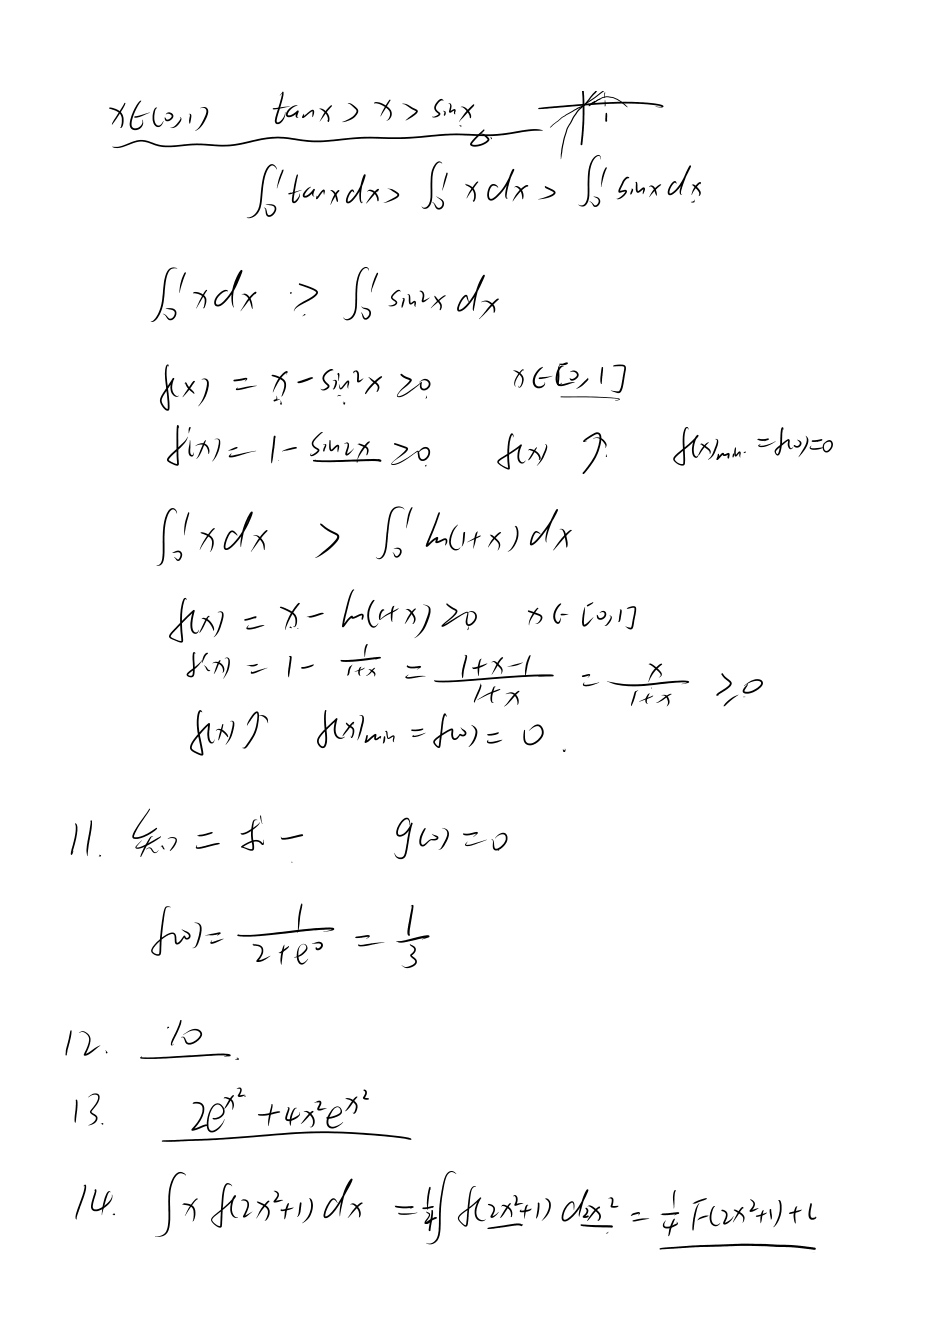 x∈(0,1) tanx > x > sinx
∫₀¹ tanxdx > ∫₀¹ xdx > ∫₀¹ sinxdx
∫₀¹ xdx > ∫₀¹ sin²x dx
f(x) = x - sin²x ≥0 x∈[0,1]
f'(x) = 1 - sin2x ≥0 f(x) ↑ f(x)min = f(0)=0
∫₀¹ xdx > ∫₀¹ ln(1+x) dx
f(x) = x - ln(1+x) ≥0 x∈[0,1]
f'(x) = 1 - 1/(1+x) = (1+x-1)/(1+x) = x/(1+x) ≥0
f(x)↑ f(x)min = f(0) = 0.
11. 知二求一 g(0)=0
f(0) = 1/(2+e⁰) = 1/3
12. 10
13. 2e^(x²) + 4x²e^(x²)
14. ∫x f(2x²+1) dx = 1/4 ∫ f(2x²+1) d2x² = 1/4 F(2x²+1)+C